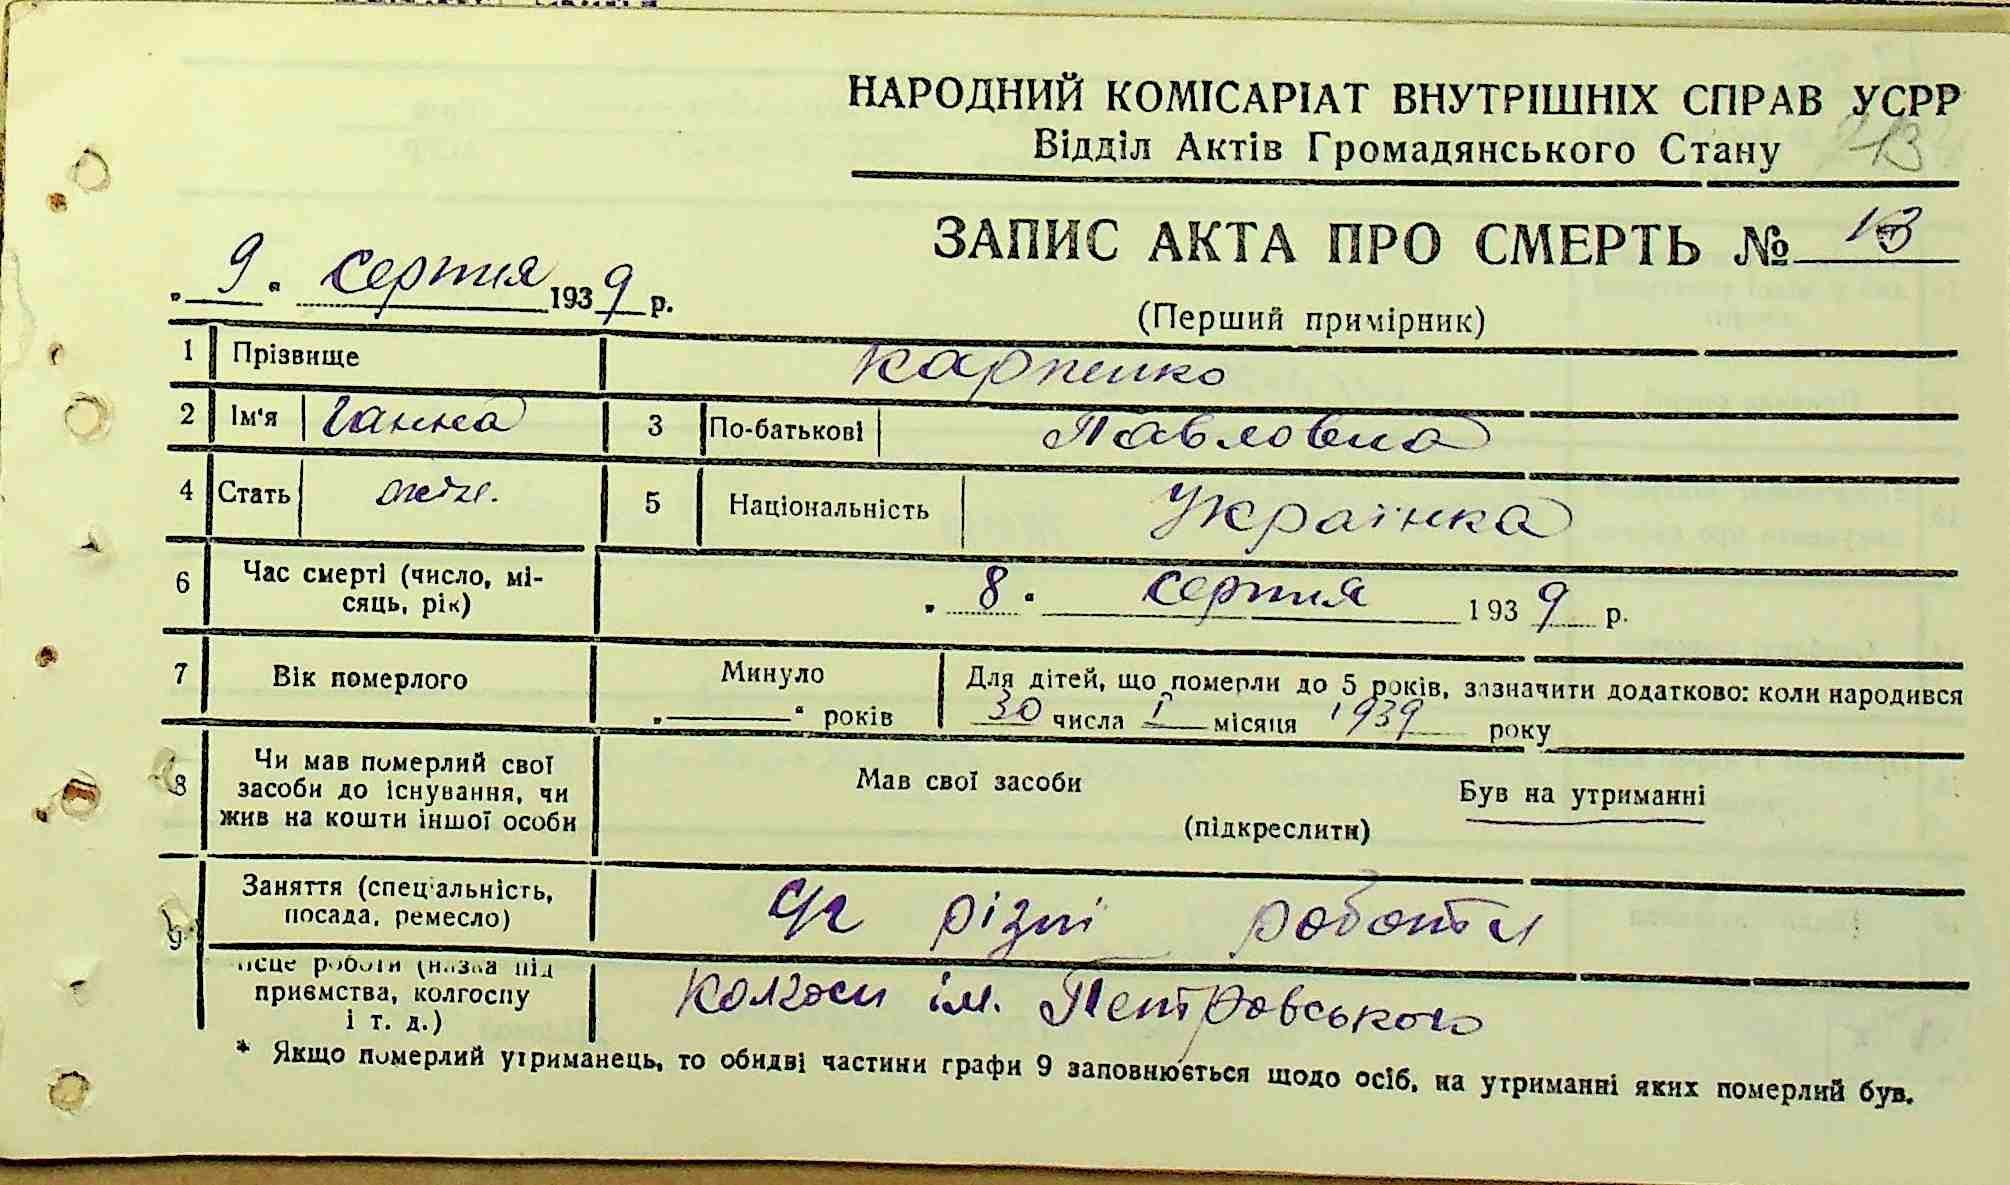 НАРОДНИЙ КОМІСАРІАТ ВНУТРІШНІХ СПРАВ УСРР
Відділ Актів Громадянського Стану
ЗАПИС АКТА ПРО СМЕРТЬ № 13
„ 9 “ серпня 1939 р.
(Перший примірник)
1 Прізвище Карпенко
2 Ім'я Ганна 3 По-батькові Павловна
4 Стать жін. 5 Національність Українка
6 Час смерті (число, мі-
сяць, рік) „ 8 “ серпня 1939 р.
7 Вік померлого Минуло „ — “ років
Для дітей, що померли до 5 років, зазначити додатково: коли народився
30 числа I місяця 1939 року
8 Чи мав померлий свої
засоби до існування, чи
жив на кошти іншої особи
Мав свої засоби Був на утриманні
(підкреслити)
9 Заняття (спеціальність,
посада, ремесло) різні роботи
місце роботи (назва під
приємства, колгоспу
і т. д.) колгосп ім. Петровського
* Якщо померлий утриманець, то обидві частини графи 9 заповнюється щодо осіб, на утриманні яких померлий був.